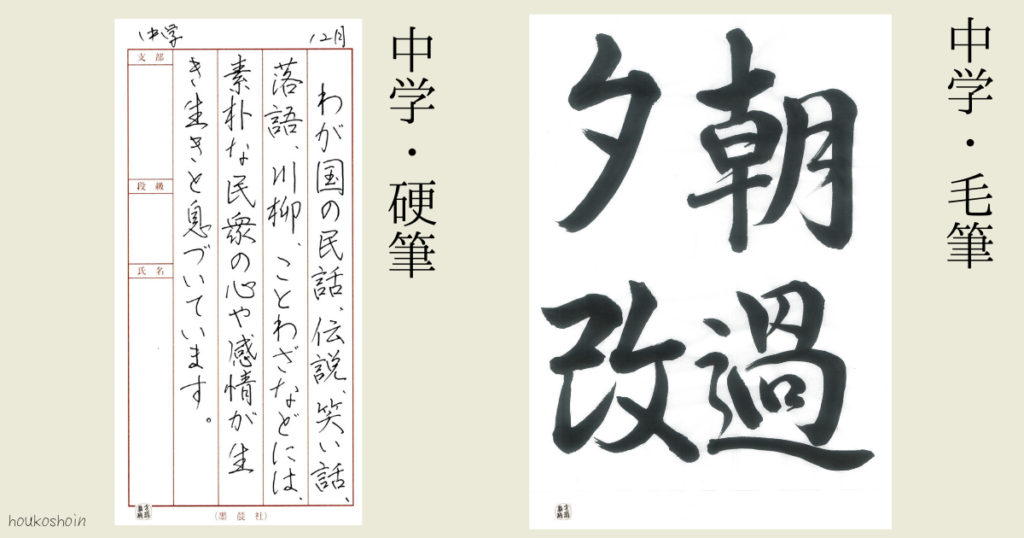 中学・毛筆
朝過
夕改
中学・硬筆
中学
12月
わが国の民話、伝説、笑い話、
落語、川柳、ことわざなどには、
素朴な民衆の心や感情が生
き生きと息づいています。
支部
段級
氏名
houkoshoin